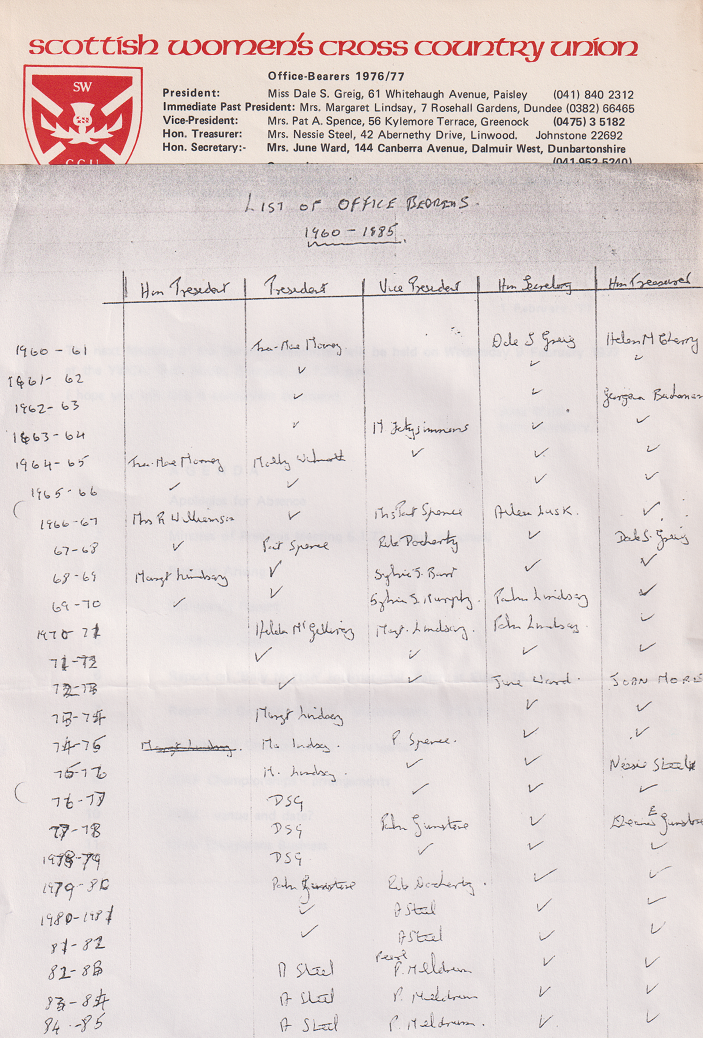 scottish women's cross country union
Office-Bearers 1976/77
SW
President: Miss Dale S. Greig, 61 Whitehaugh Avenue, Paisley (041) 840 2312
Immediate Past President: Mrs. Margaret Lindsay, 7 Rosehall Gardens, Dundee (0382) 66465
Vice-President: Mrs. Pat A. Spence, 56 Kylemore Terrace, Greenock (0475) 3 5182
Hon. Treasurer: Mrs. Nessie Steel, 42 Abernethy Drive, Linwood. Johnstone 22692
Hon. Secretary:- Mrs. June Ward, 144 Canberra Avenue, Dalmuir West, Dunbartonshire
(041-952-5240)
LIST OF OFFICE BEARERS.
1960-1985.
Hon President President Vice President Hon Secretary Hon Treasurer
1960-61 Dale S Greig Helen M Cherry
1961-62 ✓ ✓ ✓
1962-63 ✓ ✓ Georgena Buchanan
1963-64 ✓ ✓ ✓
1964-65 Molly Wilmott ✓ ✓ ✓
1965-66 ✓ ✓ ✓ ✓
1966-67 Mrs R Williamson ✓ Mrs Pat Spence Aileen Lusk. ✓
67-68 ✓ Pat Spence Reb Docherty ✓ Dale S. Greig
68-69 Margt Lindsay ✓ Sylvia S. Barr ✓ ✓
69-70 ✓ ✓ Sylvia S. Murphy Palm Lindsay ✓
1970-71 Margt. Lindsay. Palm Lindsay. ✓
71-72 ✓ ✓ ✓ ✓
72-73 ✓ ✓ June Ward.
73-74 Margt Lindsay ✓ ✓
74-75 Margt Lindsay. Mar Lindsay. P Spence. ✓ ✓
75-76 M. Lindsay. ✓ ✓ Nessie Steel
76-77 DSG ✓ ✓ ✓
77-78 DSG Palm Gunstone ✓
1978-79 DSG ✓ ✓ ✓
1979-80 Palm Gunstone Reb Docherty. ✓ ✓
1980-1981 ✓ A Steel ✓ ✓
81-82 ✓ A Steel ✓ ✓
82-83 A Steel Pearl P. Meldrum ✓ ✓
83-84 A Steel P. Meldrum ✓ ✓
84.-85 A Steel P. Meldrum. ✓ ✓